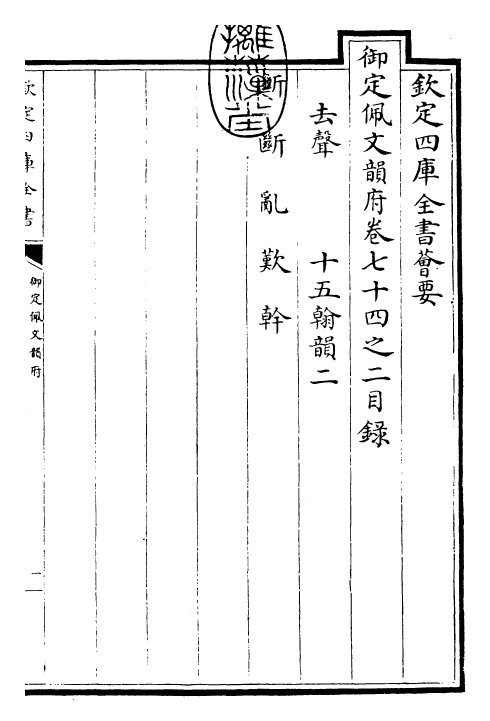 欽定四庫全書薈要
御定佩文韻府卷七十四之二目錄
去聲 十五翰韻二
斷 亂 歎 幹
欽定四庫全書
御定佩文韻府